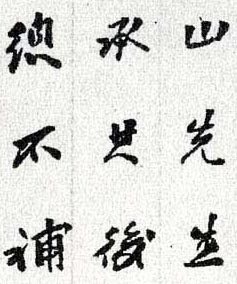 山先生
承其後
總不補